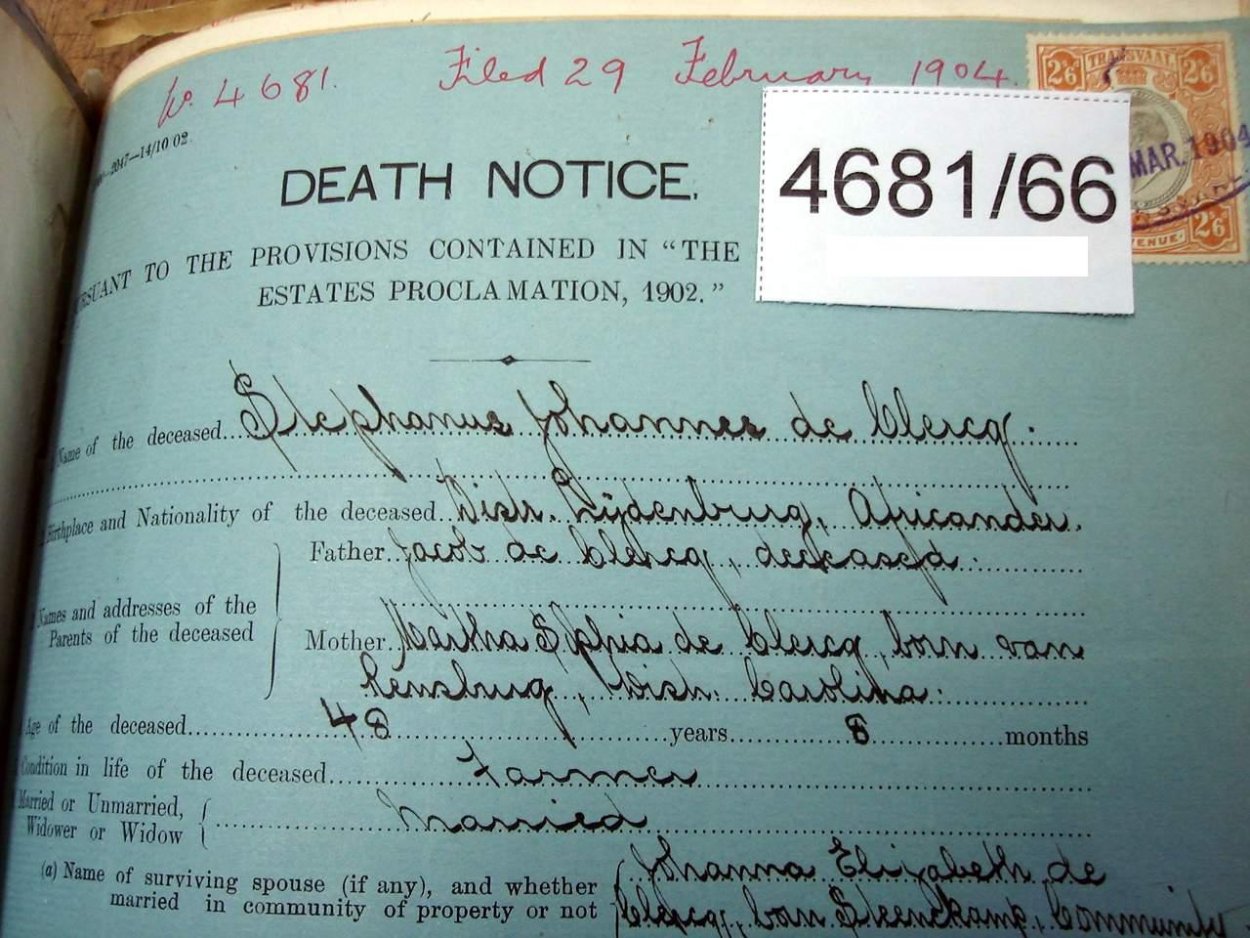 No. 4681. Filed 29 February 1904.
TRANSVAAL
2/6 2/6
4681/66
MAR. 1904
2/6
2047—14/10 02
DEATH NOTICE.
PURSUANT TO THE PROVISIONS CONTAINED IN “THE
ESTATES PROCLAMATION, 1902.”
Name of the deceased Stephanus Johannes de Clercq.
Birthplace and Nationality of the deceased Distr. Lijdenburg, Africander.
Names and addresses of the Parents of the deceased
Father Jacob de Clercq, deceased.
Mother Martha Sophia de Clercq, born van
Rensburg, Distr. Carolina.
Age of the deceased 48 years 8 months
Condition in life of the deceased Farmer
Married or Unmarried,
Widower or Widow Married
(a) Name of surviving spouse (if any), and whether Johanna Elizabeth de
married in community of property or not Clercq, born Steenekamp, Community